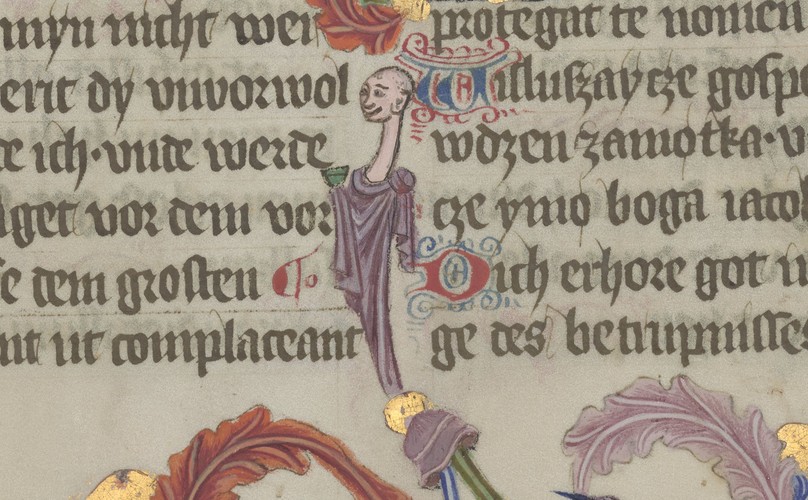 myn nicht wer
erit dy vnvorwol
ich · vnde werde
get vor dem vor
dem grosten To
ut complaceant
protegat te nomen
Wisluszay cze gosp
wdzen zamotka · v
cze ymo boga iacob
Dich erhore got
ge des betrupnisses